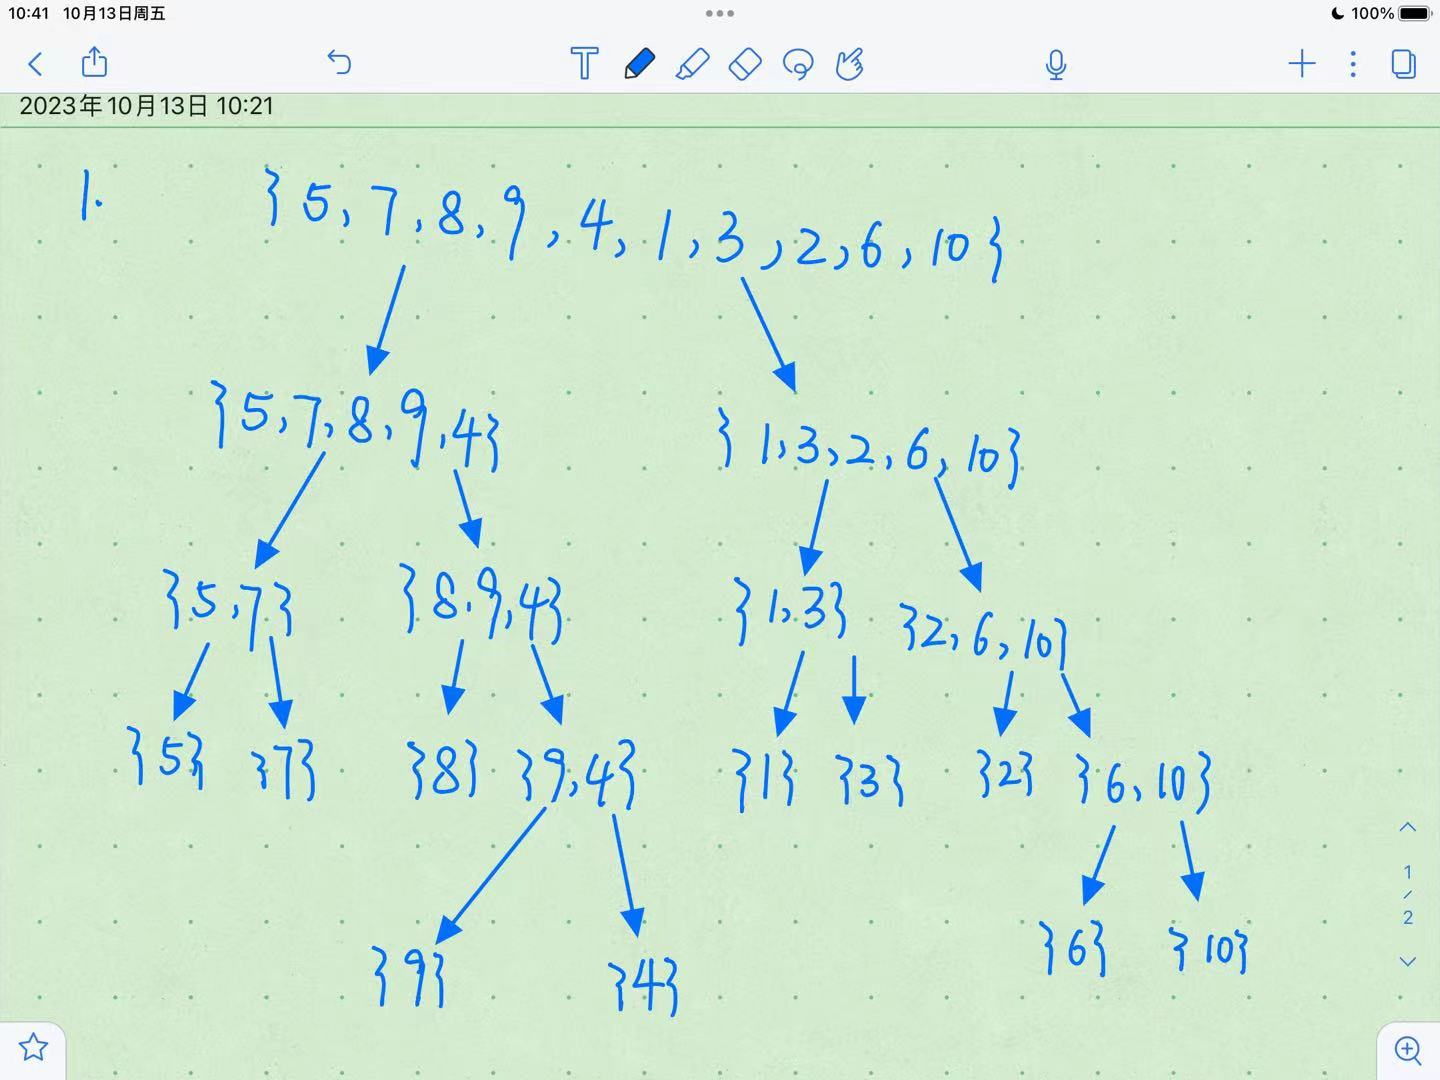 10:41 10月13日周五
100%
2023年10月13日 10:21
1. {5,7,8,9,4,1,3,2,6,10}
{5,7,8,9,4} {1,3,2,6,10}
{5,7} {8,9,4} {1,3} {2,6,10}
{5} {7} {8} {9,4} {1} {3} {2} {6,10}
{9} {4} {6} {10}
1
/
2